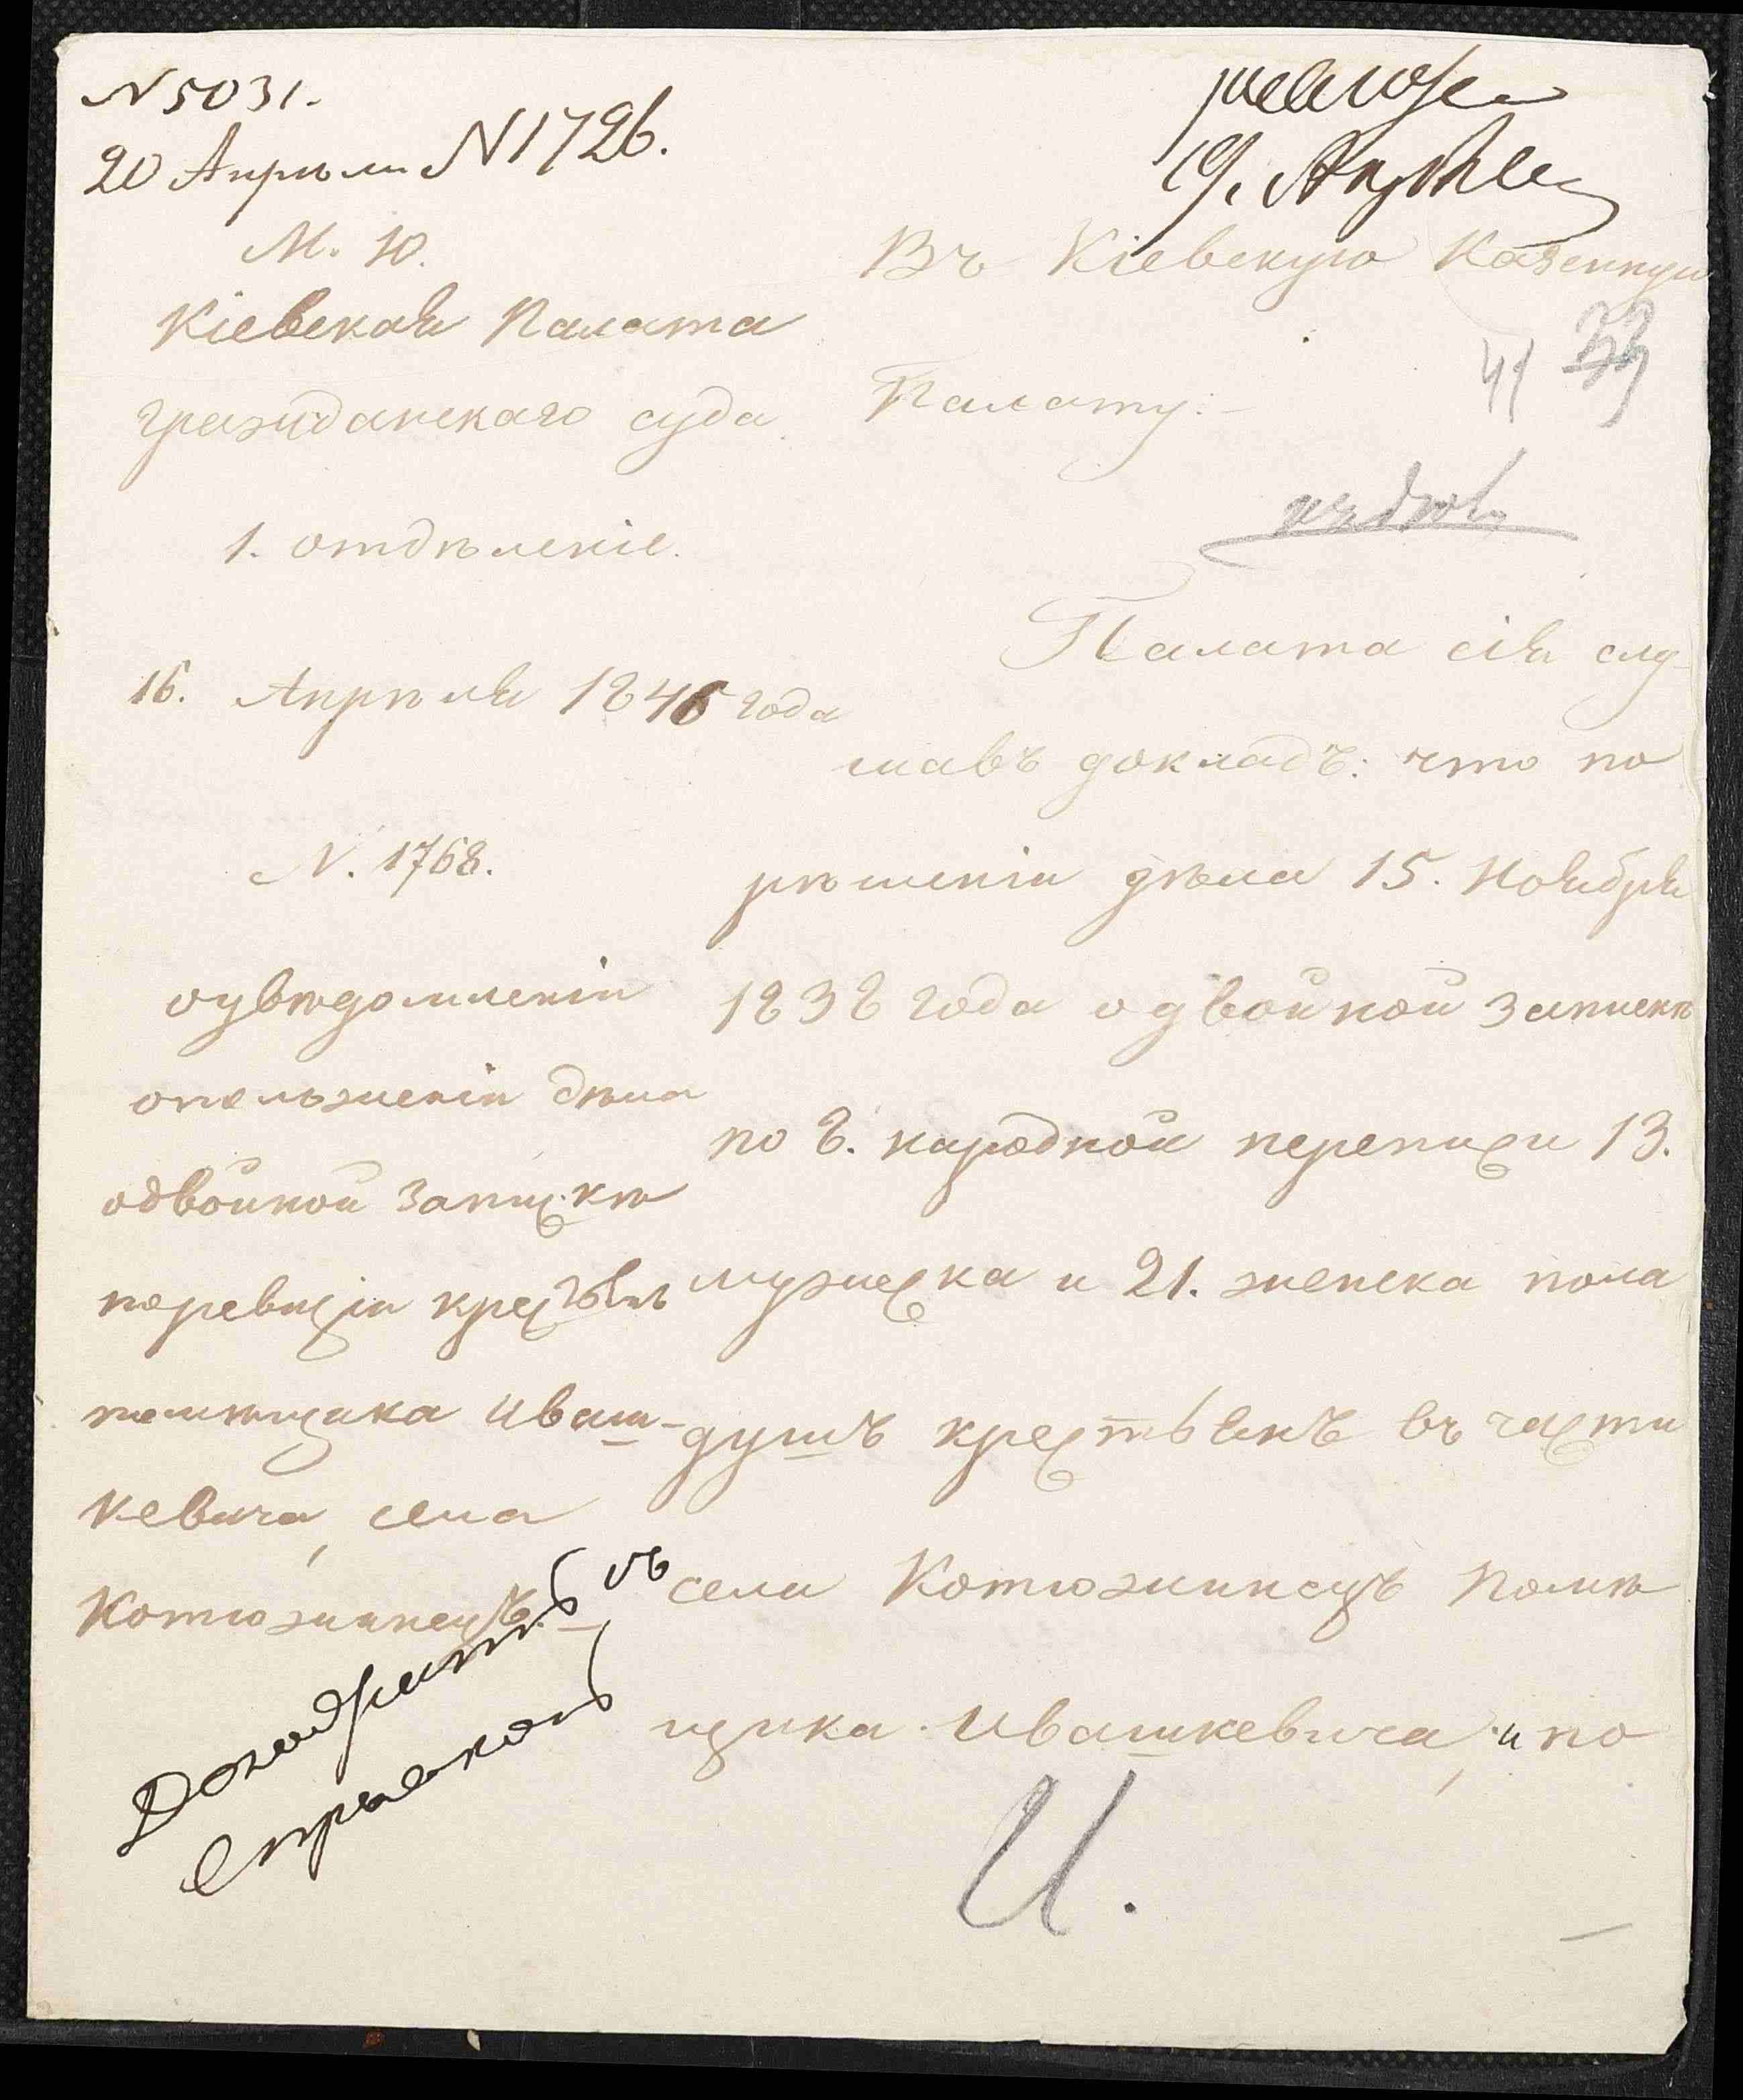 N 5031.
20 Апрѣля N 1726.
19. Апрѣля
М. Ю.
Кіевская Палата
гражданскаго суда
1. отдѣленіе.
16. Апрѣля 1846 года
N. 1768.
оувѣдомленіи
дѣла
одвойной запискѣ
поревизіи
помѣщика Иваш-
кевича, села
Котюжинецъ.
справкою
Въ Кіевскую Казенную
Палату.
41 33
Палата сія слу-
шавъ докладъ: что по
рѣшеніи дѣла 15. Ноября
1838 года одвойной запискѣ
по 8. народной переписи 13.
мужеска и 21. женска пола
душъ крестьянъ въ части
села Котюжинецъ Помѣ
щика Ивашкевича, и по
И.